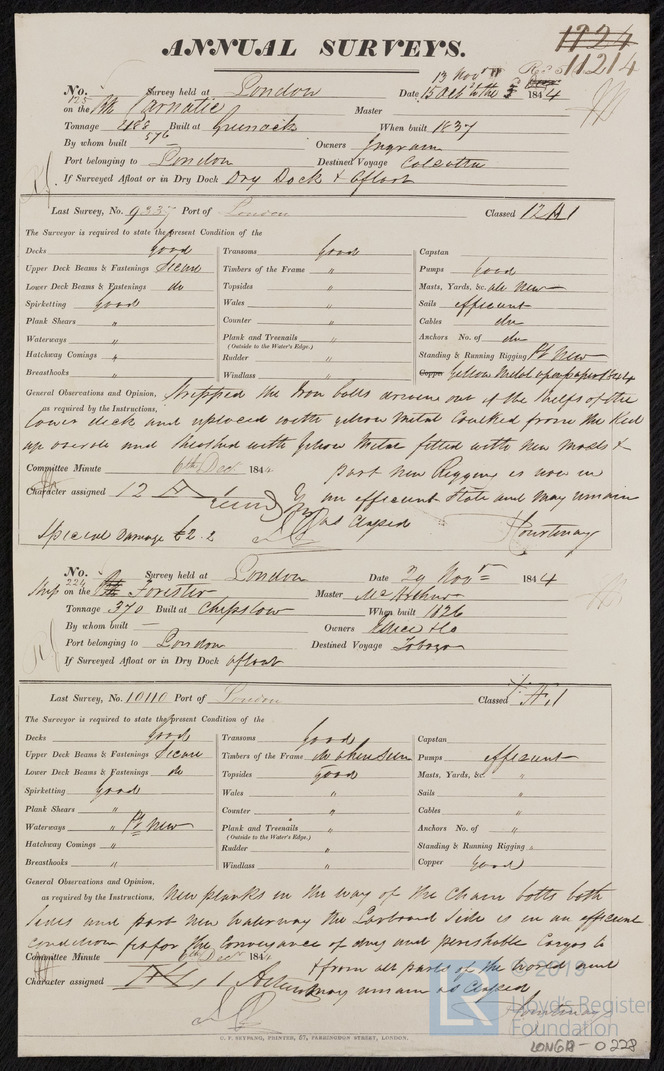 ANNUAL SURVEYS.
1124
11214
No. 125 Survey held at London Date 13 Novr 1844
on the Bk Carnatic Master
Tonnage 488 576 Built at Greenock When built 1837
By whom built Owners Ingram
Port belonging to London Destined Voyage Calcutta
If Surveyed Afloat or in Dry Dock Dry Dock & Afloat
Last Survey, No. 9337 Port of London Classed 12 A 1
The Surveyor is required to state the present Condition of the
Decks good
Upper Deck Beams & Fastenings Secure
Lower Deck Beams & Fastenings do
Spirketting good
Plank Shears "
Waterways "
Hatchway Comings "
Breasthooks "
Transoms Good
Timbers of the Frame "
Topsides "
Wales "
Counter "
Plank and Treenails "
(Outside to the Water's Edge.)
Rudder "
Windlass "
Capstan
Pumps Good
Masts, Yards, &c. all New
Sails efficient
Cables do
Anchors No. of do
Standing & Running Rigging Pt New
Copper Yellow Metal
General Observations and Opinion, Stripped the Iron bolts driven out of the shelfs of the
as required by the Instructions,
lower deck and replaced with yellow Metal Caulked from the Keel
up overole and Sheathed with Yellow Metal fitted with new Masts &
Committee Minute 6th Decr 1844 part new Rigging is now in
Character assigned 12 A 1 an efficient State and May remain
as Classed
Special Damage £2.2 Courtenay
No. 224 Survey held at London Date 29 Novr 1844
Ship on the Forester Master McArthur
Tonnage 370 Built at Chepstow When built 1826
By whom built — Owners & Co
Port belonging to London Destined Voyage Tobago
If Surveyed Afloat or in Dry Dock afloat
Last Survey, No. 10110 Port of London Classed Æ 1
The Surveyor is required to state the present Condition of the
Decks good
Upper Deck Beams & Fastenings Secure
Lower Deck Beams & Fastenings do
Spirketting Good
Plank Shears "
Waterways " Pt New
Hatchway Comings "
Breasthooks "
Transoms Good
Timbers of the Frame do when seen
Topsides Good
Wales "
Counter "
Plank and Treenails "
(Outside to the Water's Edge.)
Rudder "
Windlass "
Capstan
Pumps efficient
Masts, Yards, &c. "
Sails "
Cables "
Anchors No. of "
Standing & Running Rigging "
Copper Good
General Observations and Opinion,
as required by the Instructions, New planks in the way of the Chain bolts both
Sides and part new Waterway the Larboard Side is in an efficient
condition fit for the Conveyance of dry and perishable Cargos to
Committee Minute 6th Decr 1844 & from all parts of the World and
Character assigned Æ 1 may remain as Classed
Courtenay
C. F. SEYFANG, PRINTER, 57, FARRINGDON STREET, LONDON.
LR © 2019
Lloyd's Register
Foundation
LONGB-0228